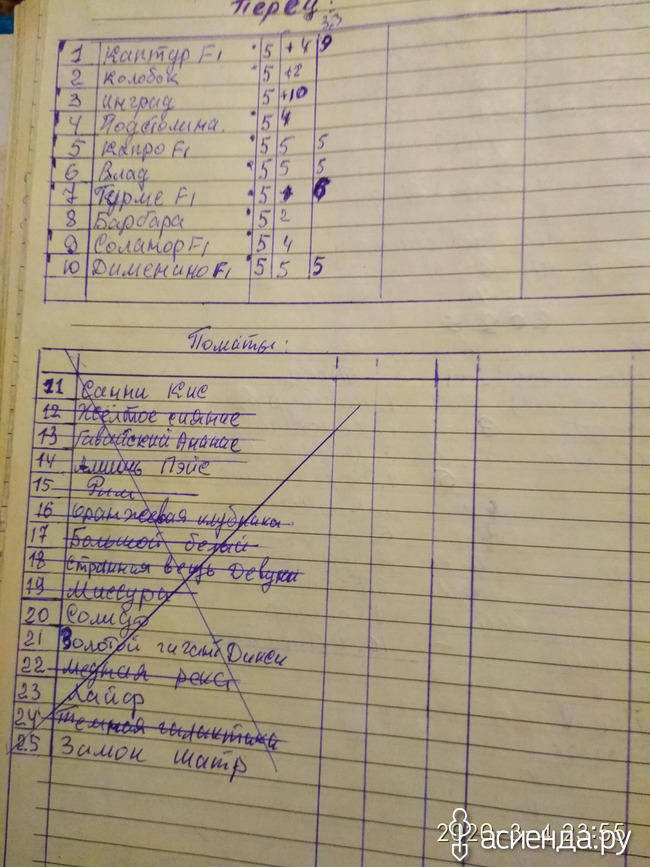 Перец:
33
1 Каптур F1 5 +4 9
2 Колобок 5 +2
3 Ингрид 5 +10
4 Подсолина. 5 4
5 Капро F1 5 5 5
6 Влад 5 5 5
7 Турме F1 5 6
8 Барбара 5 2
9 Соланор F1 5 4
10 Дименино F1 5 5 5
Томаты:
11 Санни Кис
12 Жёлтое сияние
13 Гавайский Ананас
14 Пэйс
15 Рим
16 Оранжевая клубника
17 Большой белый
18 Странная вещь Девуки
19 Миссури
20
21 Золотой гигант Дикси
22 Медная река
23 Хайфр
24 Темная галактика
25 Замок шатр
2020-3-4 23:55
асиенда.ру